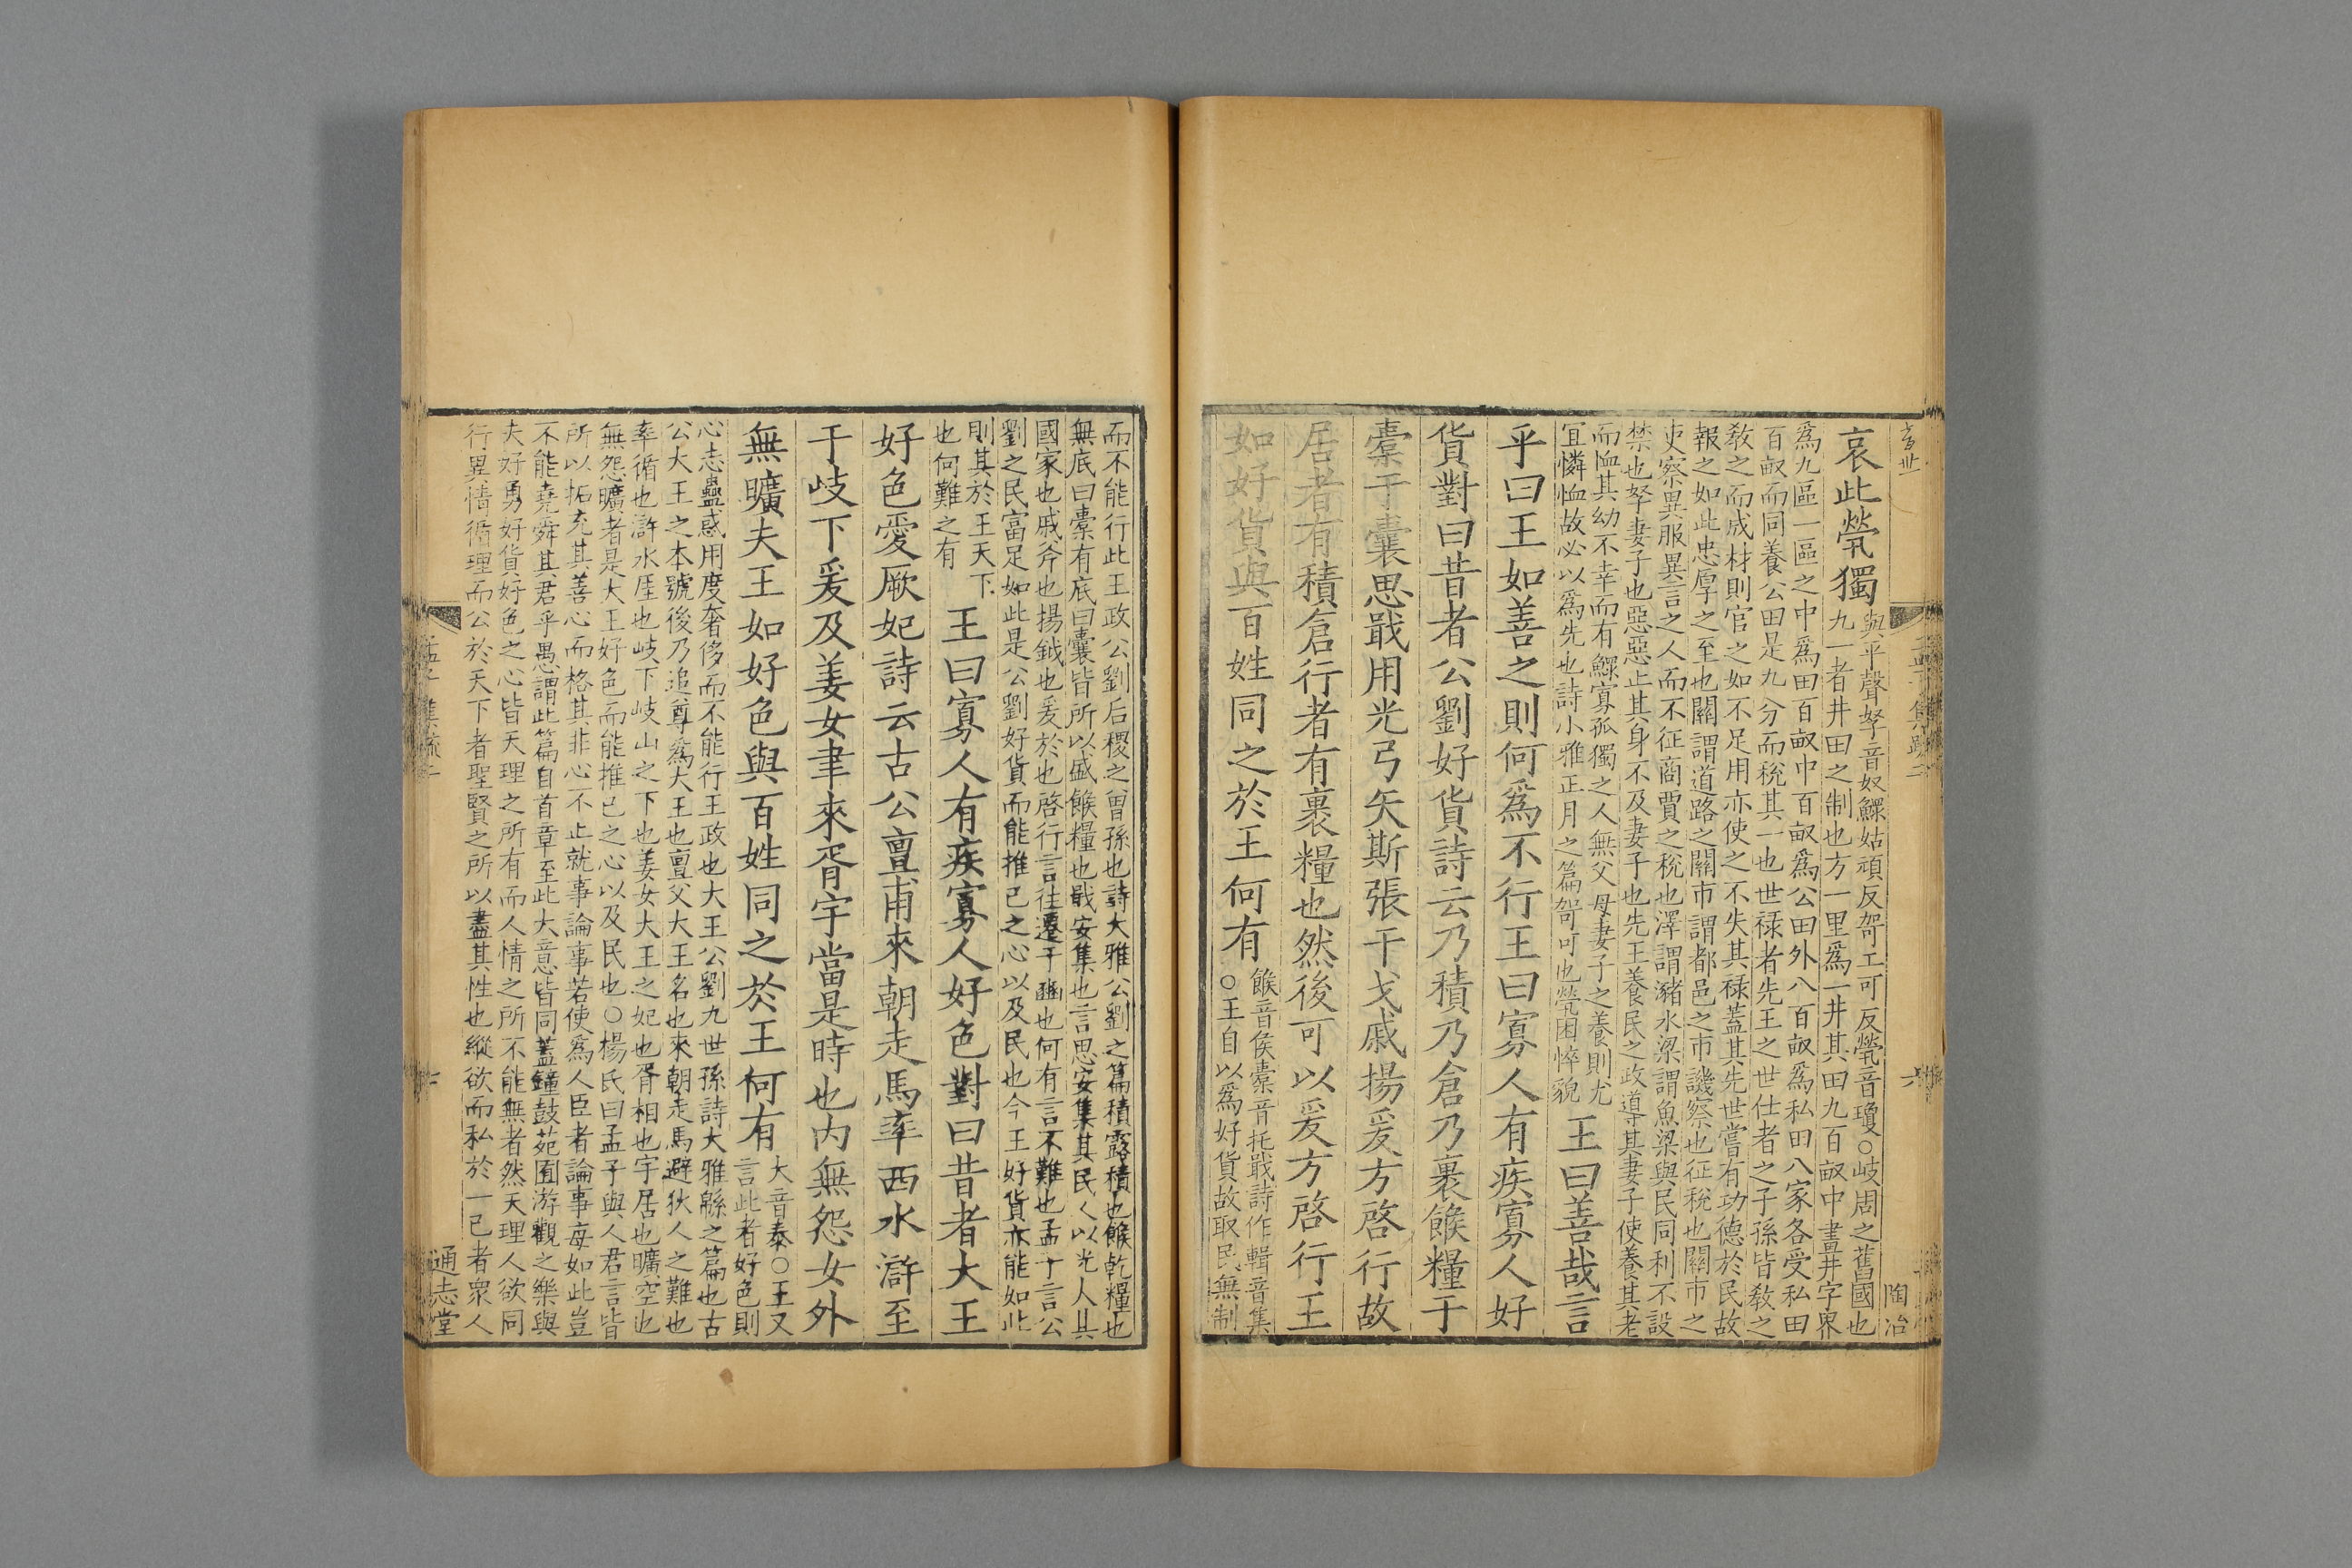 哀此煢獨
與平聲孥音奴鰥姑頑反哿工可反煢音瓊○岐周之舊國也
九一者井田之制也方一里爲一井其田九百畝中畫井字界
爲九區一區之中爲田百畝中百畝爲公田外八百畝爲私田八家各受私田
百畝而同養公田是九分而稅其一也世祿者先王之世仕者之子孫皆敎之
敎之而成材則官之如不足用亦使之不失其祿蓋其先世嘗有功德於民故
報之如此忠厚之至也關謂道路之關市謂都邑之市譏察也征稅也關市之
吏察異服異言之人而不征商賈之稅也澤謂瀦水梁謂魚梁與民同利不設
禁也孥妻子也惡惡止其身不及妻子也先王養民之政導其妻子使養其老
而恤其幼不幸而有鰥寡孤獨之人無父母妻子之養則尤
宜憐恤故必以爲先也詩小雅正月之篇哿可也煢困悴貌
王曰善哉言
乎曰王如善之則何爲不行王曰寡人有疾寡人好
貨對曰昔者公劉好貨詩云乃積乃倉乃裹餱糧于
橐于囊思戢用光弓矢斯張干戈戚揚爰方啓行故
居者有積倉行者有裹糧也然後可以爰方啓行王
如好貨與百姓同之於王何有
餱音侯橐音托戢詩作輯音集
○王自以爲好貨故取民無制
陶冶
六
而不能行此王政公劉后稷之曾孫也詩大雅公劉之篇積露積也餱乾糧也
無底曰橐有底曰囊皆所以盛餱糧也戢安集也言思安集其民人以光大其
國家也戚斧也揚鉞也爰於也啓行言往遷于豳也何有言不難也孟子言公
劉之民富足如此是公劉好貨而能推己之心以及民也今王好貨亦能如此
則其於王天下
也何難之有
王曰寡人有疾寡人好色對曰昔者大王
好色愛厥妃詩云古公亶甫來朝走馬率西水滸至
于岐下爰及姜女聿來胥宇當是時也內無怨女外
無曠夫王如好色與百姓同之於王何有
大音泰○王又
言此者好色則
心志蠱惑用度奢侈而不能行王政也大王公劉九世孫詩大雅緜之篇也古
公大王之本號後乃追尊爲大王也亶父大王名也來朝走馬避狄人之難也
率循也滸水厓也岐下岐山之下也姜女大王之妃也胥相也宇居也曠空也
無怨曠者是大王好色而能推己之心以及民也○楊氏曰孟子與人君言皆
所以拓充其善心而格其非心不止就事論事若使爲人臣者論事每如此豈
不能堯舜其君乎愚謂此篇自首章至此大意皆同蓋鐘鼓苑囿游觀之樂與
夫好勇好貨好色之心皆天理之所有而人情之所不能無者然天理人欲同
行異情循理而公於天下者聖賢之所以盡其性也縱欲而私於一己者衆人
通志堂